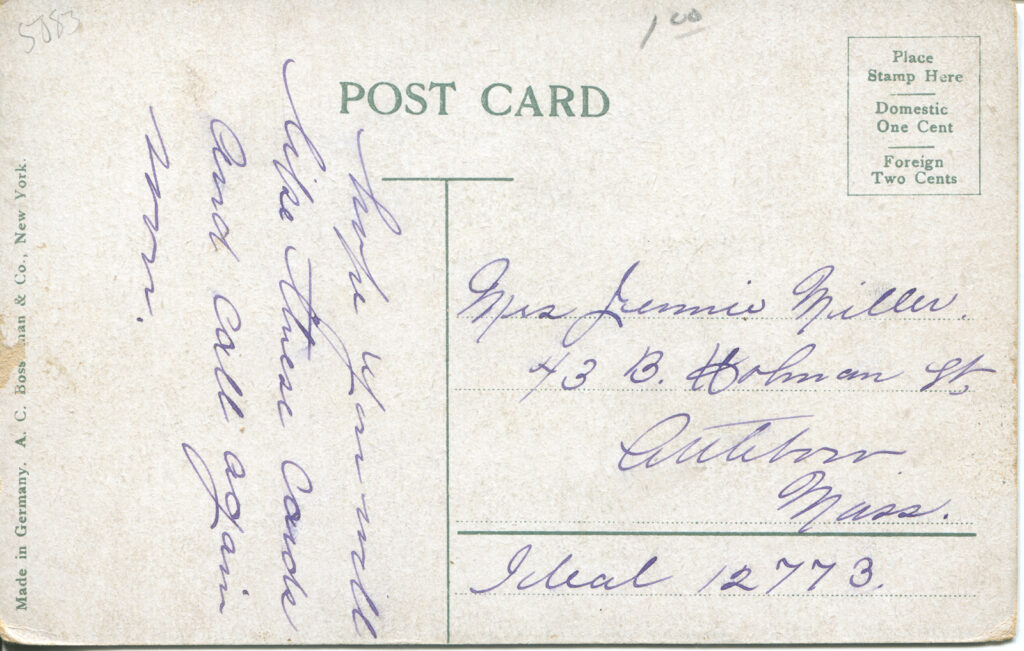 5083
1 00
POST CARD
Place
Stamp Here
Domestic
One Cent
Foreign
Two Cents
Made in Germany. A. C. Boss man & Co., New York.
hope you will
like these cards
and call again
Mrs Jennie Miller.
43 B. Holman St,
Attlebow
Mass.
Ideal 12773.